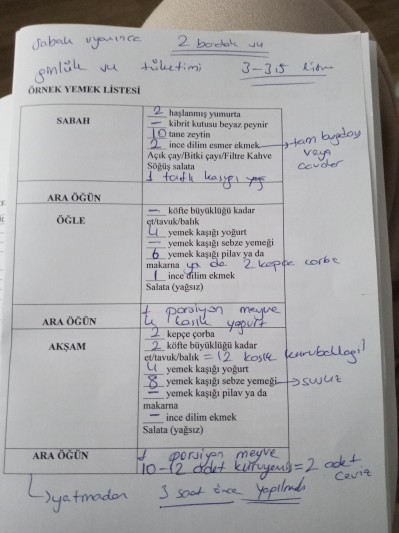 sabah uyanınca 2 bardak su
günlük su tüketimi 3-3,5 litre
ÖRNEK YEMEK LİSTESİ
SABAH
2 haşlanmış yumurta
— kibrit kutusu beyaz peynir
10 tane zeytin
2 ince dilim esmer ekmek → tam buğday veya çavdar
Açık çay/Bitki çayı/Filtre Kahve
Söğüş salata
1 tatlı kaşığı yağ
ARA ÖĞÜN
ÖĞLE
— köfte büyüklüğü kadar
et/tavuk/balık
4 yemek kaşığı yoğurt
— yemek kaşığı sebze yemeği
6 yemek kaşığı pilav ya da
makarna ya da 2 kepçe çorba
1 ince dilim ekmek
Salata (yağsız)
ARA ÖĞÜN
1 porsiyon meyve
4 kaşık yoğurt
AKŞAM
2 kepçe çorba
2 köfte büyüklüğü kadar
et/tavuk/balık = 12 kaşık kurubaklagil
4 yemek kaşığı yoğurt
8 yemek kaşığı sebze yemeği → susuz
— yemek kaşığı pilav ya da
makarna
— ince dilim ekmek
Salata (yağsız)
ARA ÖĞÜN
1 porsiyon meyve
10-12 adet kuruyemiş = 2 adet ceviz
→ yatmadan 3 saat önce yapılmalı